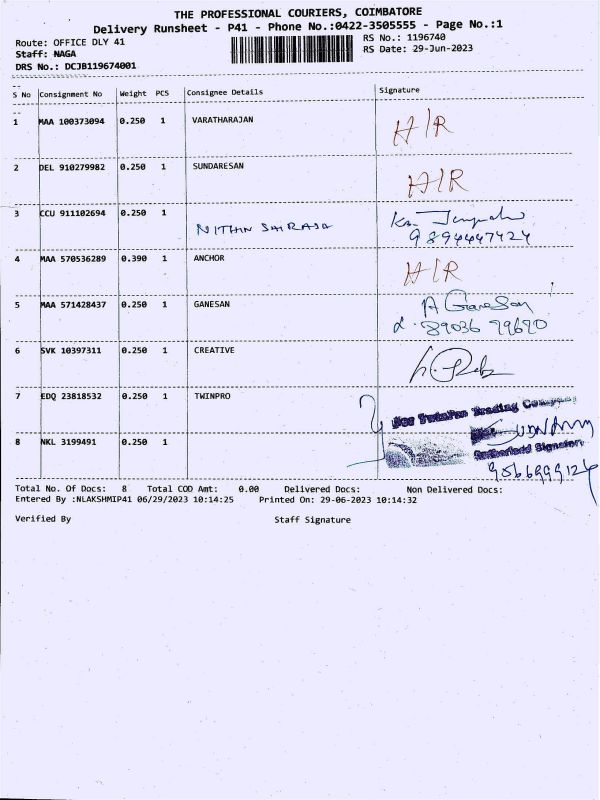 THE PROFESSIONAL COURIERS, COIMBATORE
Delivery Runsheet - P41 - Phone No.:0422-3505555 - Page No.:1
Route: OFFICE DLY 41 RS No.: 1196740
Staff: NAGA RS Date: 29-Jun-2023
DRS No.: DCJB119674001
S No Consignment No Weight PCS Consignee Details Signature
1 MAA 100373094 0.250 1 VARATHARAJAN H/R
2 DEL 910279982 0.250 1 SUNDARESAN H/R
3 CCU 911102694 0.250 1 NITHIN SAIRAJA
9894447424
4 MAA 570536289 0.390 1 ANCHOR H/R
5 MAA 571428437 0.250 1 GANESAN A Ganesan
89036 79670
6 SVK 10397311 0.250 1 CREATIVE
7 EDQ 23818532 0.250 1 TWINPRO
For TwinPro Trading Company
8 NKL 3199491 0.250 1
Authorised Signatory
9566999124
Total No. Of Docs: 8 Total COD Amt: 0.00 Delivered Docs: Non Delivered Docs:
Entered By :NLAKSHMIP41 06/29/2023 10:14:25 Printed On: 29-06-2023 10:14:32
Verified By Staff Signature